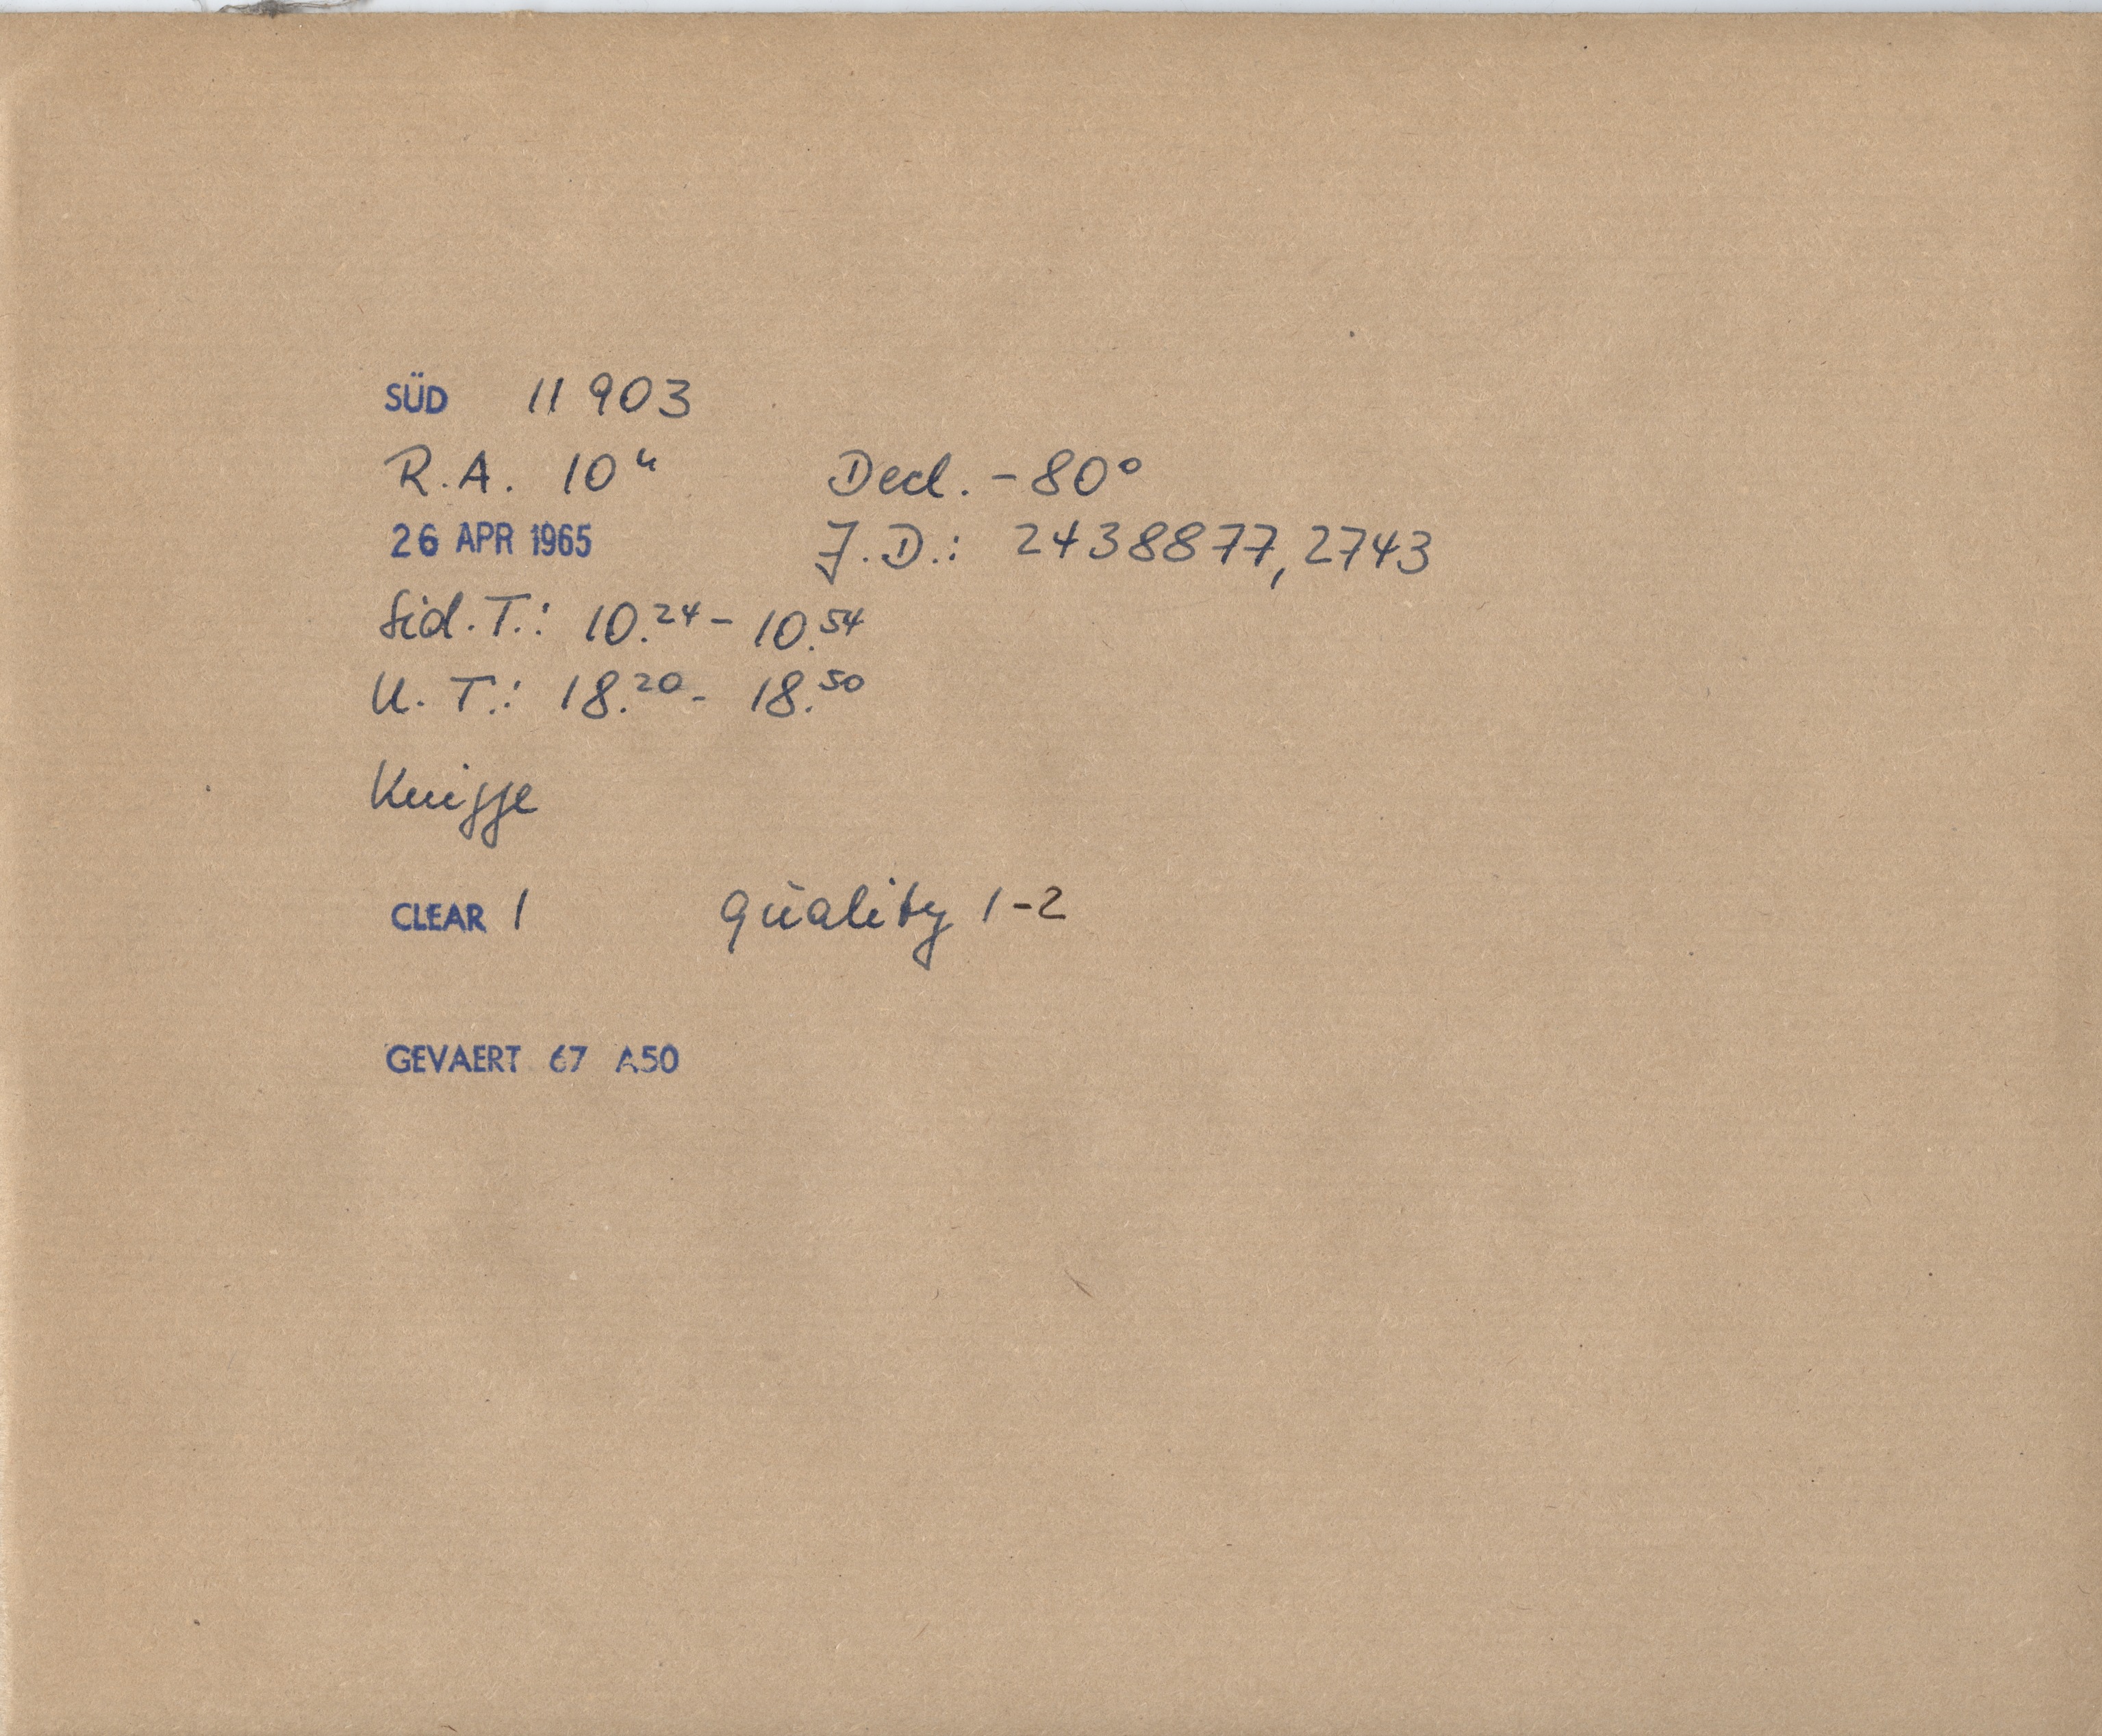 SÜD 11903
R.A. 10ʰ Decl. -80°
26 APR 1965 J.D.: 2438877,2743
Sid.T.: 10.²⁴ - 10.⁵⁴
U.T.: 18.²⁰ - 18.⁵⁰
Knigge
CLEAR 1 Quality 1-2
GEVAERT 67 A50